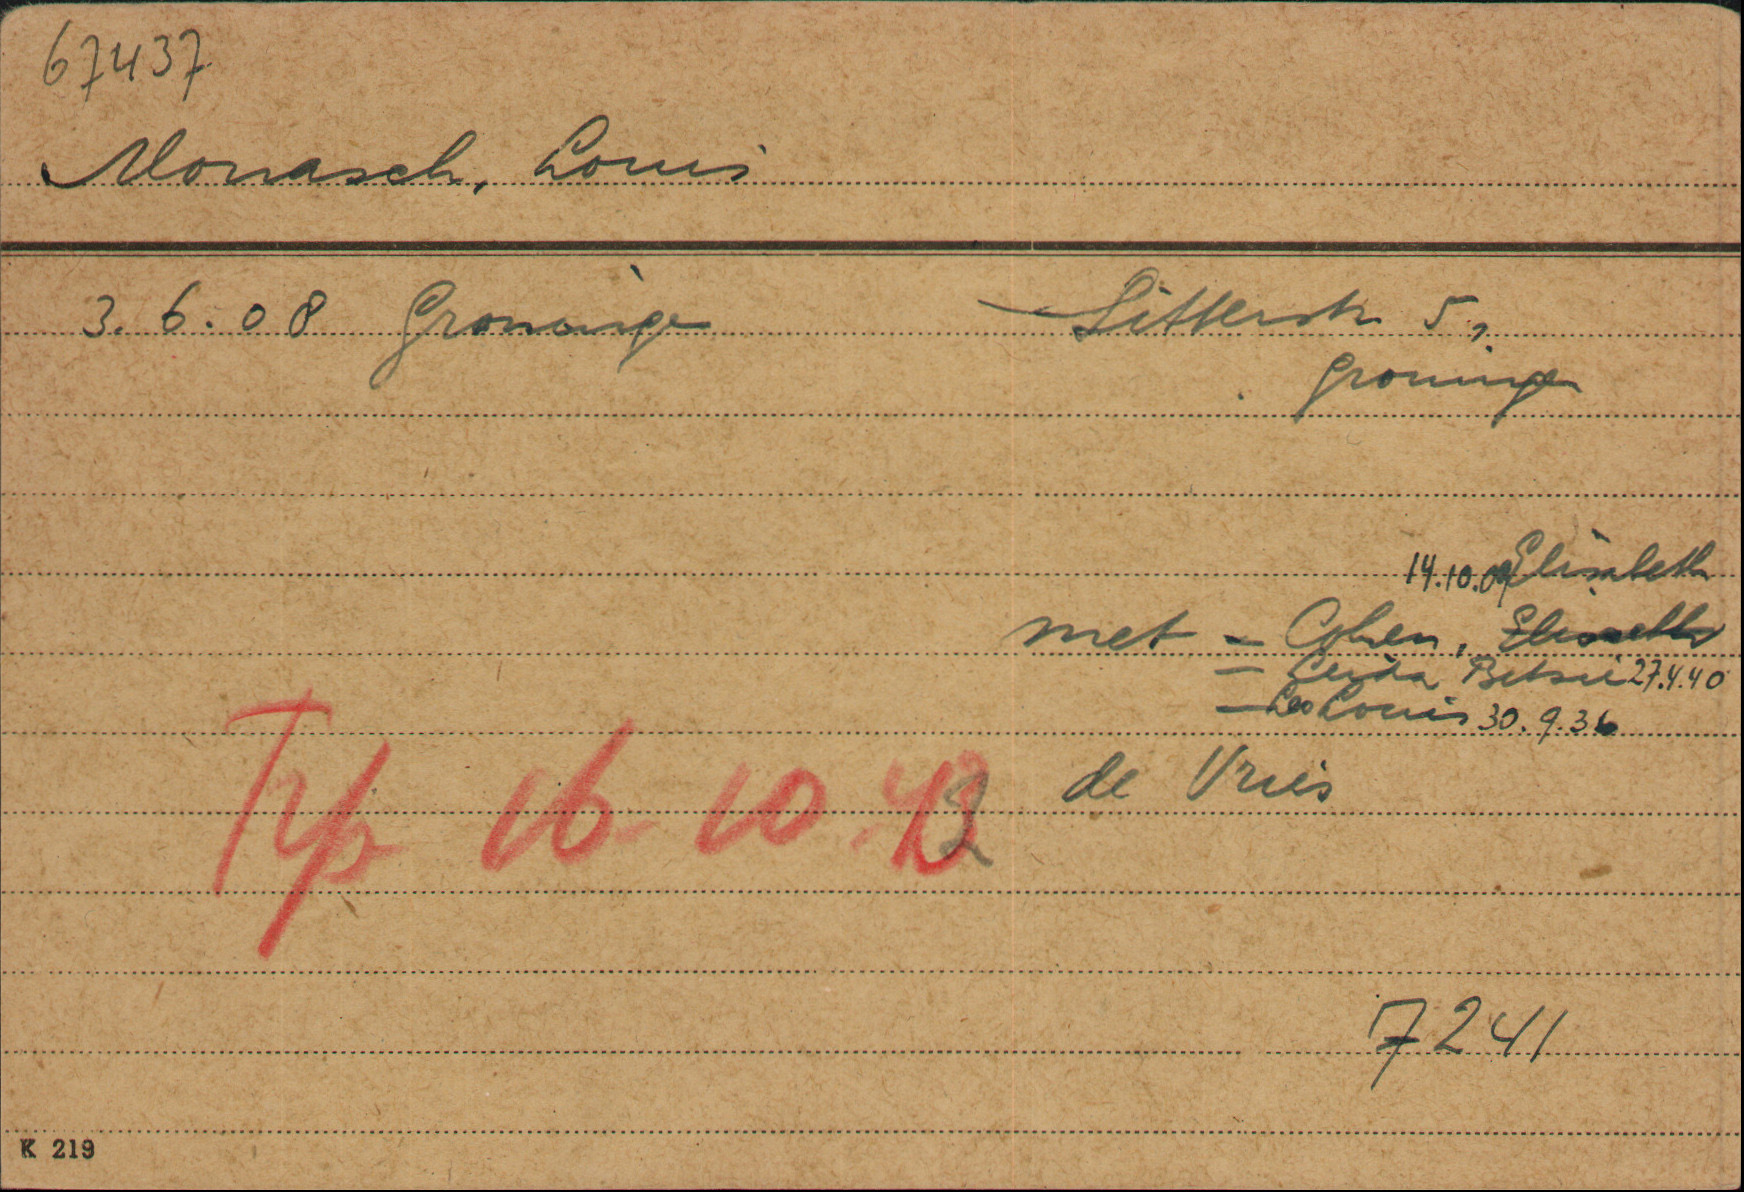 67437
Monasch, Louis
3. 6. 08 Groningen
Groningen
14.10.09 Elisabeth
met - Cohen, Elisabeth
- Betsie 27.4.40
- Leo Louis 30.9.36
de Vries
Trp 16-10.42
7241
K 219